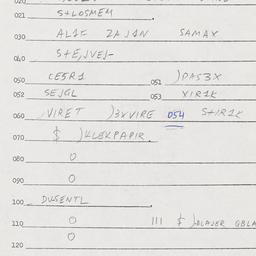 021 S+LOSMEM
030 AL1F ZAJ1N SAMAX
040
050 CE5R1 051 )DAS3X
052 SEJGL 053 XIR1K
060 VIRET )3XVIRE 054 S+IR1K
070 $ )KLEKPAPIR.
080 0
090 0
100 DUSENTL
110 0 111 $
120 0